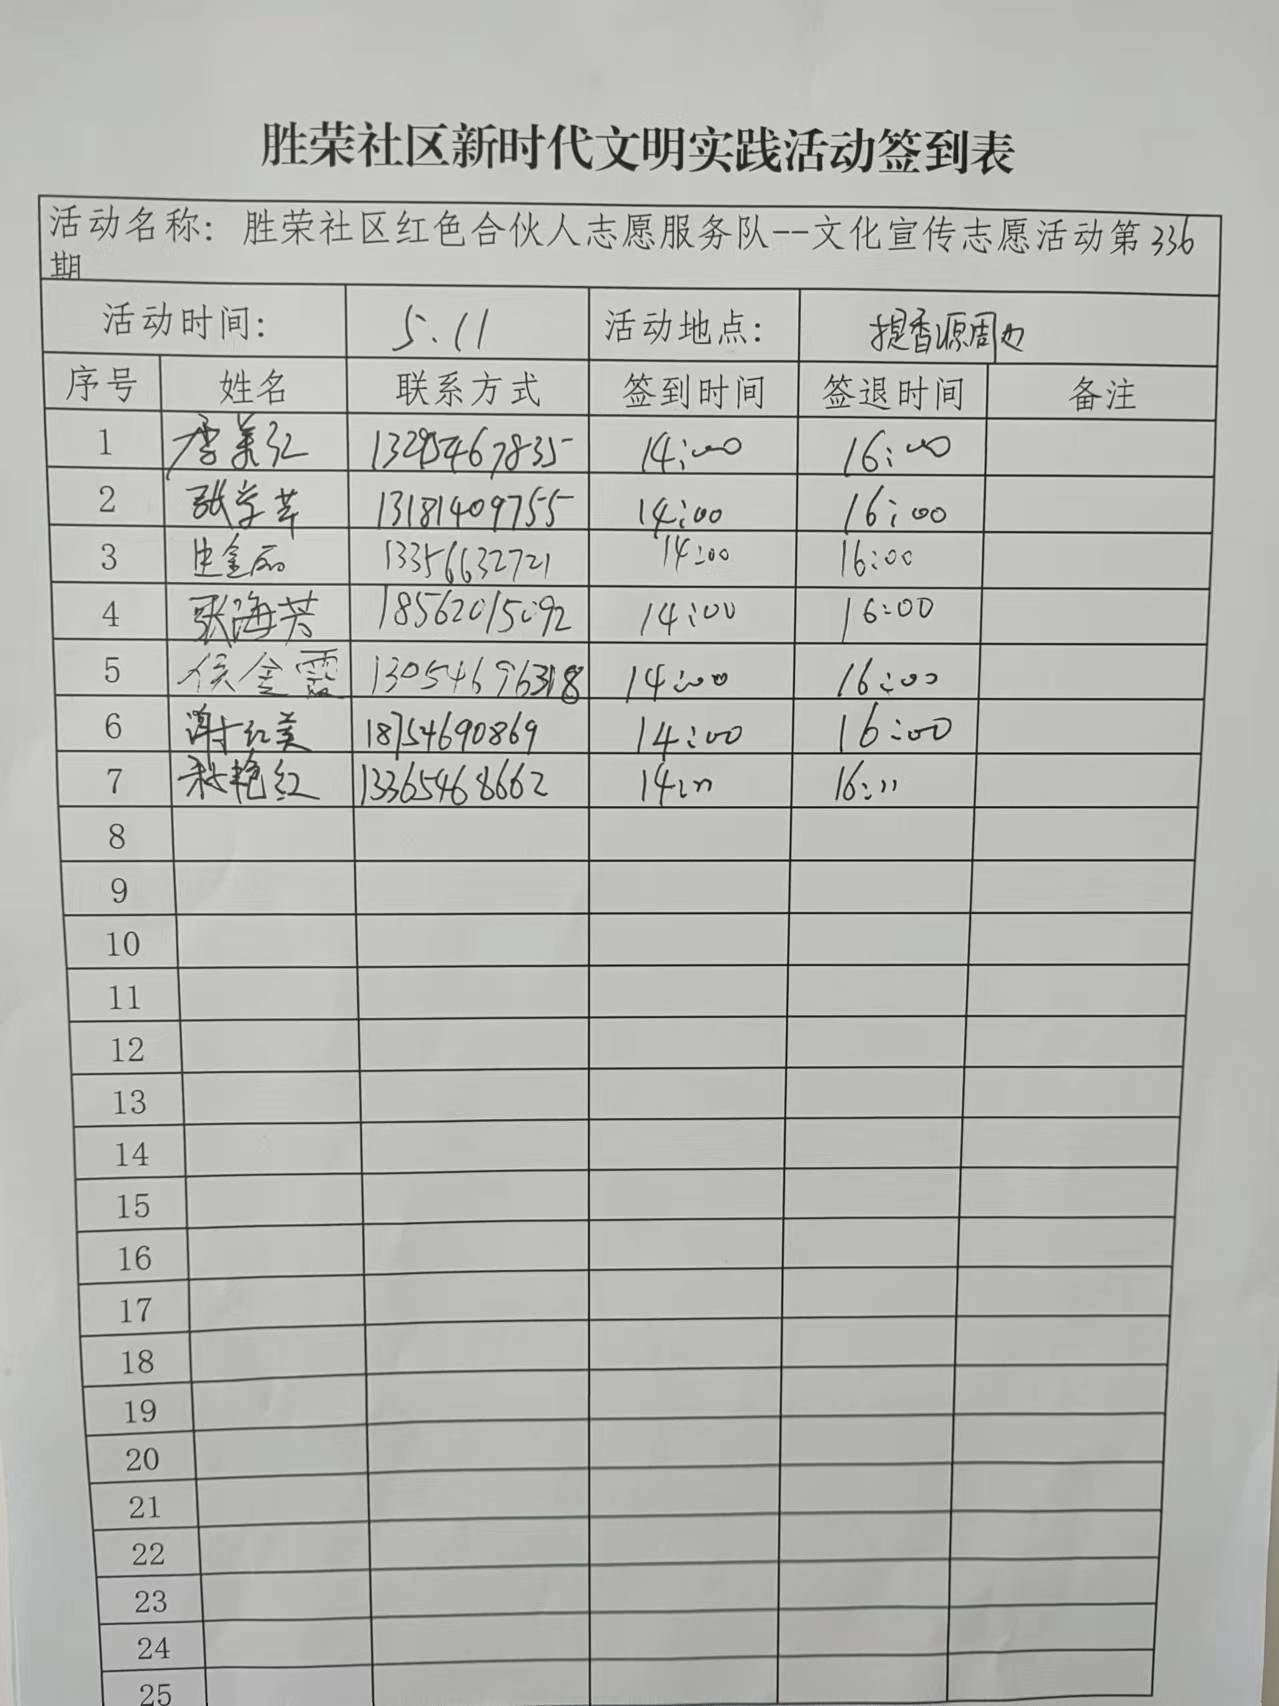 胜荣社区新时代文明实践活动签到表
活动名称：胜荣社区红色合伙人志愿服务队--文化宣传志愿活动第336
期
活动时间： 5.11 活动地点： 提香源周边
序号 姓名 联系方式 签到时间 签退时间 备注
1 李美红 13295467835 14:00 16:00
2 张学苹 13181409755 14:00 16:00
3 史金丽 13356632721 14:00 16:00
4 张海芳 18562015092 14:00 16:00
5 侯金霞 13054696318 14:00 16:00
6 谢红美 18754690869 14:00 16:00
7 艳红 13365468662 14:00 16:00
8
9
10
11
12
13
14
15
16
17
18
19
20
21
22
23
24
25